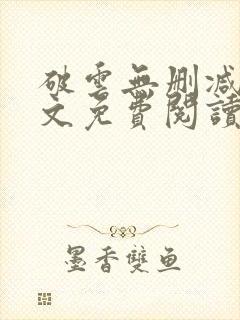 破雲無刪減
文免費閱讀
墨香雙魚